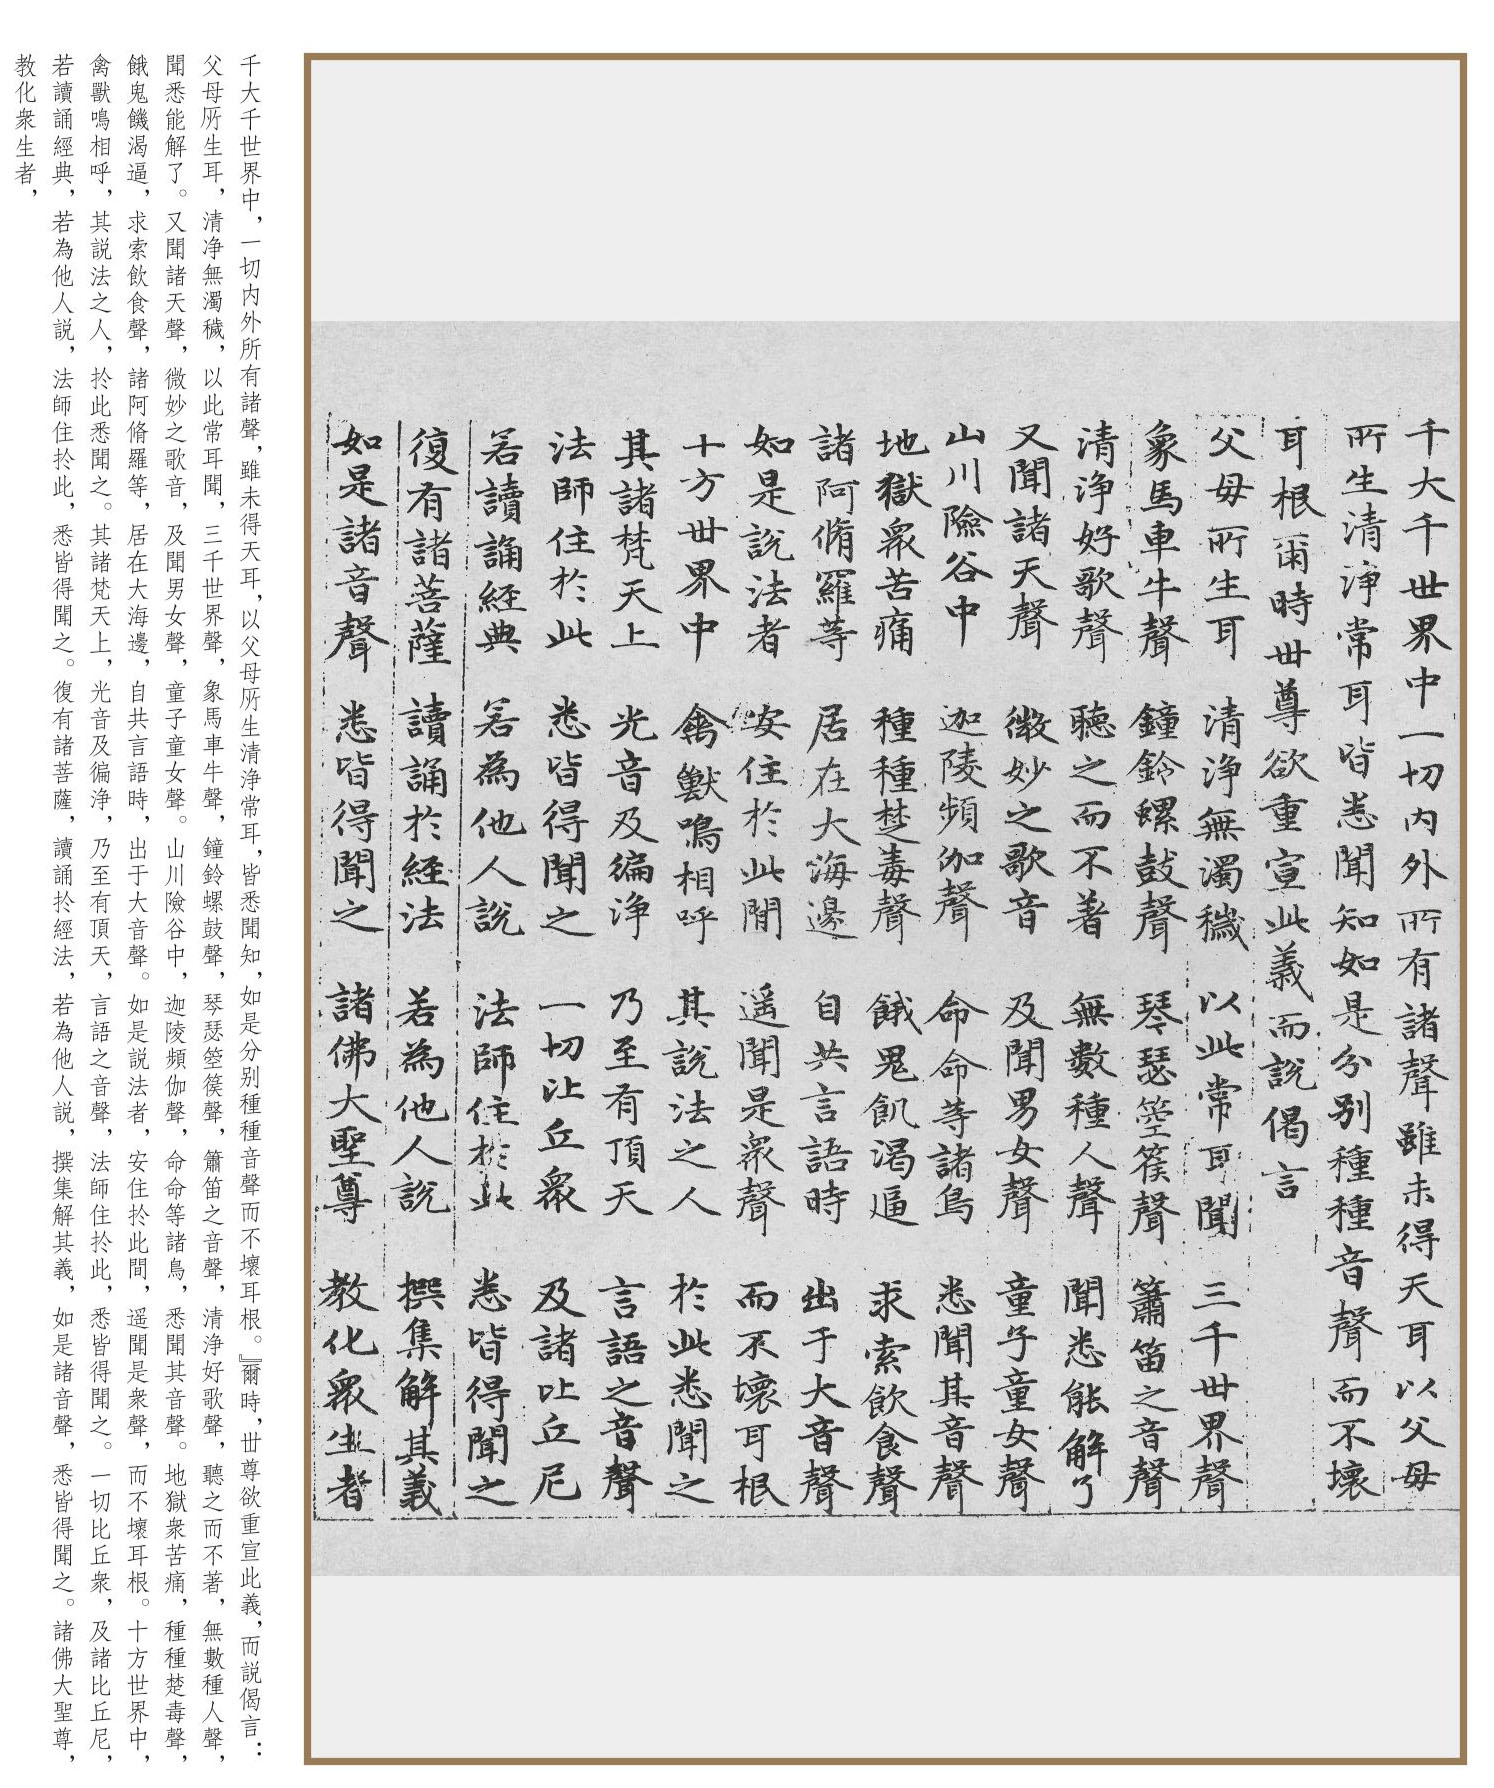 千大千世界中一切内外所有諸聲雖未得天耳以父母
所生清淨常耳皆悉聞知如是分别種種音聲而不壞
耳根爾時世尊欲重宣此義而說偈言
父母所生耳 清淨無濁穢 以此常耳聞 三千世界聲
象馬車牛聲 鐘鈴螺鼓聲 琴瑟箜篌聲 簫笛之音聲
清淨好歌聲 聽之而不著 無數種人聲 聞悉能解了
又聞諸天聲 微妙之歌音 及聞男女聲 童子童女聲
山川險谷中 迦陵頻伽聲 命命等諸鳥 悉聞其音聲
地獄衆苦痛 種種楚毒聲 餓鬼飢渴逼 求索飲食聲
諸阿脩羅等 居在大海邊 自共言語時 出于大音聲
如是說法者 安住於此間 遥聞是衆聲 而不壞耳根
十方世界中 禽獸鳴相呼 其說法之人 於此悉聞之
其諸梵天上 光音及徧淨 乃至有頂天 言語之音聲
法師住於此 悉皆得聞之 一切比丘衆 及諸比丘尼
若讀誦經典 若為他人說 法師住於此 悉皆得聞之
復有諸菩薩 讀誦於經法 若為他人說 撰集解其義
如是諸音聲 悉皆得聞之 諸佛大聖尊 教化衆生者
千大千世界中，一切内外所有諸聲，雖未得天耳，以父母所生清浄常耳，皆悉聞知，如是分别種種音聲而不壞耳根。』爾時，世尊欲重宣此義，而説偈言：
父母所生耳，清净無濁穢，以此常耳聞，三千世界聲，象馬車牛聲，鐘鈴螺鼓聲，琴瑟箜篌聲，簫笛之音聲，清浄好歌聲，聽之而不著，無數種人聲，
聞悉能解了。又聞諸天聲，微妙之歌音，及聞男女聲，童子童女聲。山川險谷中，迦陵頻伽聲，命命等諸鳥，悉聞其音聲。地獄衆苦痛，種種楚毒聲，
餓鬼饑渴逼，求索飲食聲，諸阿脩羅等，居在大海邊，自共言語時，出于大音聲。如是説法者，安住於此間，遥聞是衆聲，而不壞耳根。十方世界中，
禽獸鳴相呼，其説法之人，於此悉聞之。其諸梵天上，光音及徧浄，乃至有頂天，言語之音聲，法師住於此，悉皆得聞之。一切比丘衆，及諸比丘尼，
若讀誦經典，若為他人説，法師住於此，悉皆得聞之。復有諸菩薩，讀誦於經法，若為他人説，撰集解其義，如是諸音聲，悉皆得聞之。諸佛大聖尊，
教化衆生者，